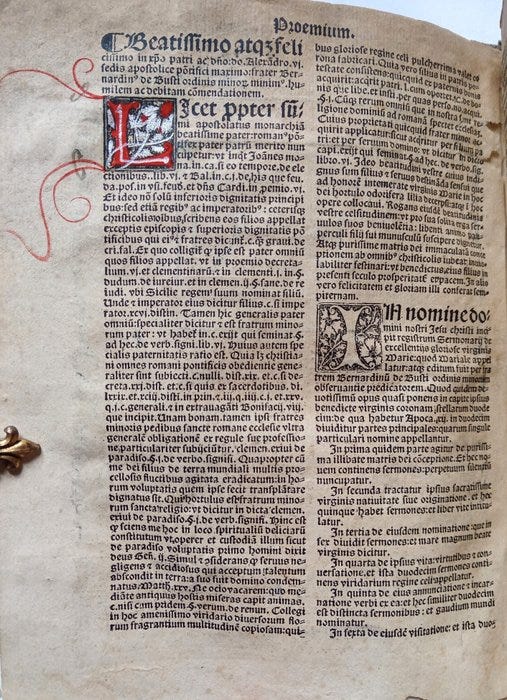 Proemium.
Beatissimo atqʒ feli
cissimo in xp̄o patri ac dn̄o: do. Alexādro. vj.
sedis apostolice pōtifici maximo: frater Ber⸗
nardinꝰ de Busti ordinis minoꝝ minimꝰ. hu⸗
milem ac debitam cōmendationem.
LIcet ꝓpter sū⸗
mi apostolatus monarchiā
beatissime pater: romanꝰ pō⸗
tifex pater patrū merito nun
cupetur: vt inqͥt Joānes mo⸗
na. in. ca. si eo tempore. de ele
ctionibus. lib. vj. ⁊ Bal. in c. j. de his que feu⸗
da. pos. in vsi. feud. et dn̄s Cardi. in ꝓemio. vj.
Et ideo nō solū inferioris dignitatis principi
bus: sed etiā regibꝰ ac imperatoribꝰ: ceterisqʒ
christicolis oībus, scribens eos filios appellat
exceptis episcopis ⁊ superioris dignitatis pō
tificibus qui eiꝰ fratres dic
cri. fal. Ex quo colligiť qͥ ipse est pater omniū
quos filios appellat. vt in proemio decreta⸗
lium. vj. et clementinarū: ⁊ in clementi. j. in. §.
dudum. de iureiur. et in clemen. ij. §. sane. de re
iudi. vbi Sicilie regem suum nominat filiū.
Unde ⁊ imperator eius dicitur filius. c. si impe
rator. xcvj. distin. Tamen hic generalis pater
omniū: specialiter dicitur ⁊ est fratrum mino⸗
rum pater: vt habet in. c. exijt qui seminat. §.
ad hec. de verb. signi. lib. vj. Huius autem spe
cialis paternitatis ratio est. Quia lʒ christia⸗
ni omnes romani pontificis obedientie gene⸗
raliter sint subiecti. c. nulli. dist. xix. et. c. si de⸗
creta. xxj. dist. et. c. si quis ex sacerdotibus. di.
lxxix. et. c. xiij. dist. in prin. ⁊ iij. q. iiij. c. j. et. xxv.
q. j. c. generali. ⁊ in extrauagāti Bonifacij. viij.
que incipit. Unam bonam. tamen ipsi fratres
minoris pedibus sancte romane ecclesie vltra
generale obligationē ex regule sue professio⸗
ne. particulariter subijciūtur. clemen. exiui de
paradiso. §. j. de verbo. signifi. Quapropter cū
me dei filius de terra mundiali multis pro⸗
cellosis fluctibus agitata eradicatum: in ho⸗
rum voluptatis quem ipse fecit transplātare
dignatus sit. Qui hortulus est fratrum mino⸗
rum sancta religio: vt dicitur in dicta clemen.
exiui de paradiso. §. j. de verb. signifi. Hinc est
qͥ sciens me hoc in loco spiritualiū deliciarū
constitutum vt operer et custodiā illum sicut
de paradiso voluptatis primo homini dixit
deus Gen̄. ij. Simul ⁊ considerans qͥ seruus ne⸗
gligens ⁊ accidiosus qui acceptum talentum
abscondit in terra: a suo fuit domino condem⸗
natus. Matth. xxv. Ne ociovacarem: quo me⸗
diāte antiquus hostis miseras capit animas.
c. nisi cum pridem §. verum. de renun. Collegi
in hoc amenissimo viridario diuersorum flo⸗
rum fragrantium multitudinē copiosam: qui⸗
bus gloriose regine celi pulcherrima valet co
rona fabricari. Quia vero filius in patris pote
testate consistens: quicquid
acquirit: acqͥrit patri.
nis que libe. et in
§. j. Cūqʒ rerum omniū que in nostra sunt re
ligione dominiū ad romanā spectet ecclesiam.
Cuius proprietati quicquid frater minor ac⸗
quirit applicatur: sicut acquirit per filium pa⸗
tri: et per seruum domino: vt dicitur in dicto
capi. exijt qui seminat. §. ad hec. de verbo. sig.
libro. vj. Ideo beatitudini vestre cuius indi⸗
gnus sum filius ⁊ seruus destināda sensui que
ad honorē intemerate virginis Marie in hoc
dei hortulo odorifera lilia decerpsi: atqʒ j. hoc
opere collocaui. Rogans eiusdē beatitudinis
vestre celsitudinem: vt pro sua solita erga ser⸗
uulos suos beniuolētia: libenti animo hoc
perculi filij sui munusculū suscipere dignetur.
Atqʒ purissime matris dei immaculatā conce⸗
ptionem ab omnibꝰ christicolis iubeat inuio⸗
labiliter festinari: vt benedictus eius filius in
presenti seculo prosperitatē et pacem. In alio
vero felicitatem et gloriam illi conferat sem⸗
piternam.
IN nomine do⸗
mini nostri Jesu christi inci⸗
pit registrum Sermonarij de
excellentijs gloriose virginis
Marie: quod Mariale appel
latur: atqʒ editum fuit per fra
trem Bernardinū de Busti ordinis minorum
obseruantie predicatorem. Quod quidem de⸗
uotissimū opus quasi ponens in capite ipsius
benedicte virginis coronam stellarum duode
cim: de qua habetur Apoca. xij. in duodecim
diuiditur partes principales: quarum singule
particulari nomine appellantur.
In prima quidem parte agitur de purissi⸗
ma illibate marie dei cōceptione. Et hec no⸗
uem continens sermones: perpetuum silentiū
nuncupatur.
In secunda tractatur ipsius sacratissime
virginis natiuitate siue originatione. et hec
quinque habet sermones: et liber vite intitu⸗
latur.
In tertia de eiusdem nominatione: que in
sex diuidit sermones: et mare magnum beate
virginis dicitur.
In quarta de ipsius vita: virtutibus ⁊ con⸗
uersatione. et ista duodecim sermones conti⸗
nens viridarium regine celi appellatur.
In quinta de eius annunciatione ⁊ incar⸗
natione verbi ex ea: et hec similiter duodecim
est distincta sermonibus: et gaudium mundi
nominatur.
In sexta de eiusdē visitatione: et ista duo⸗